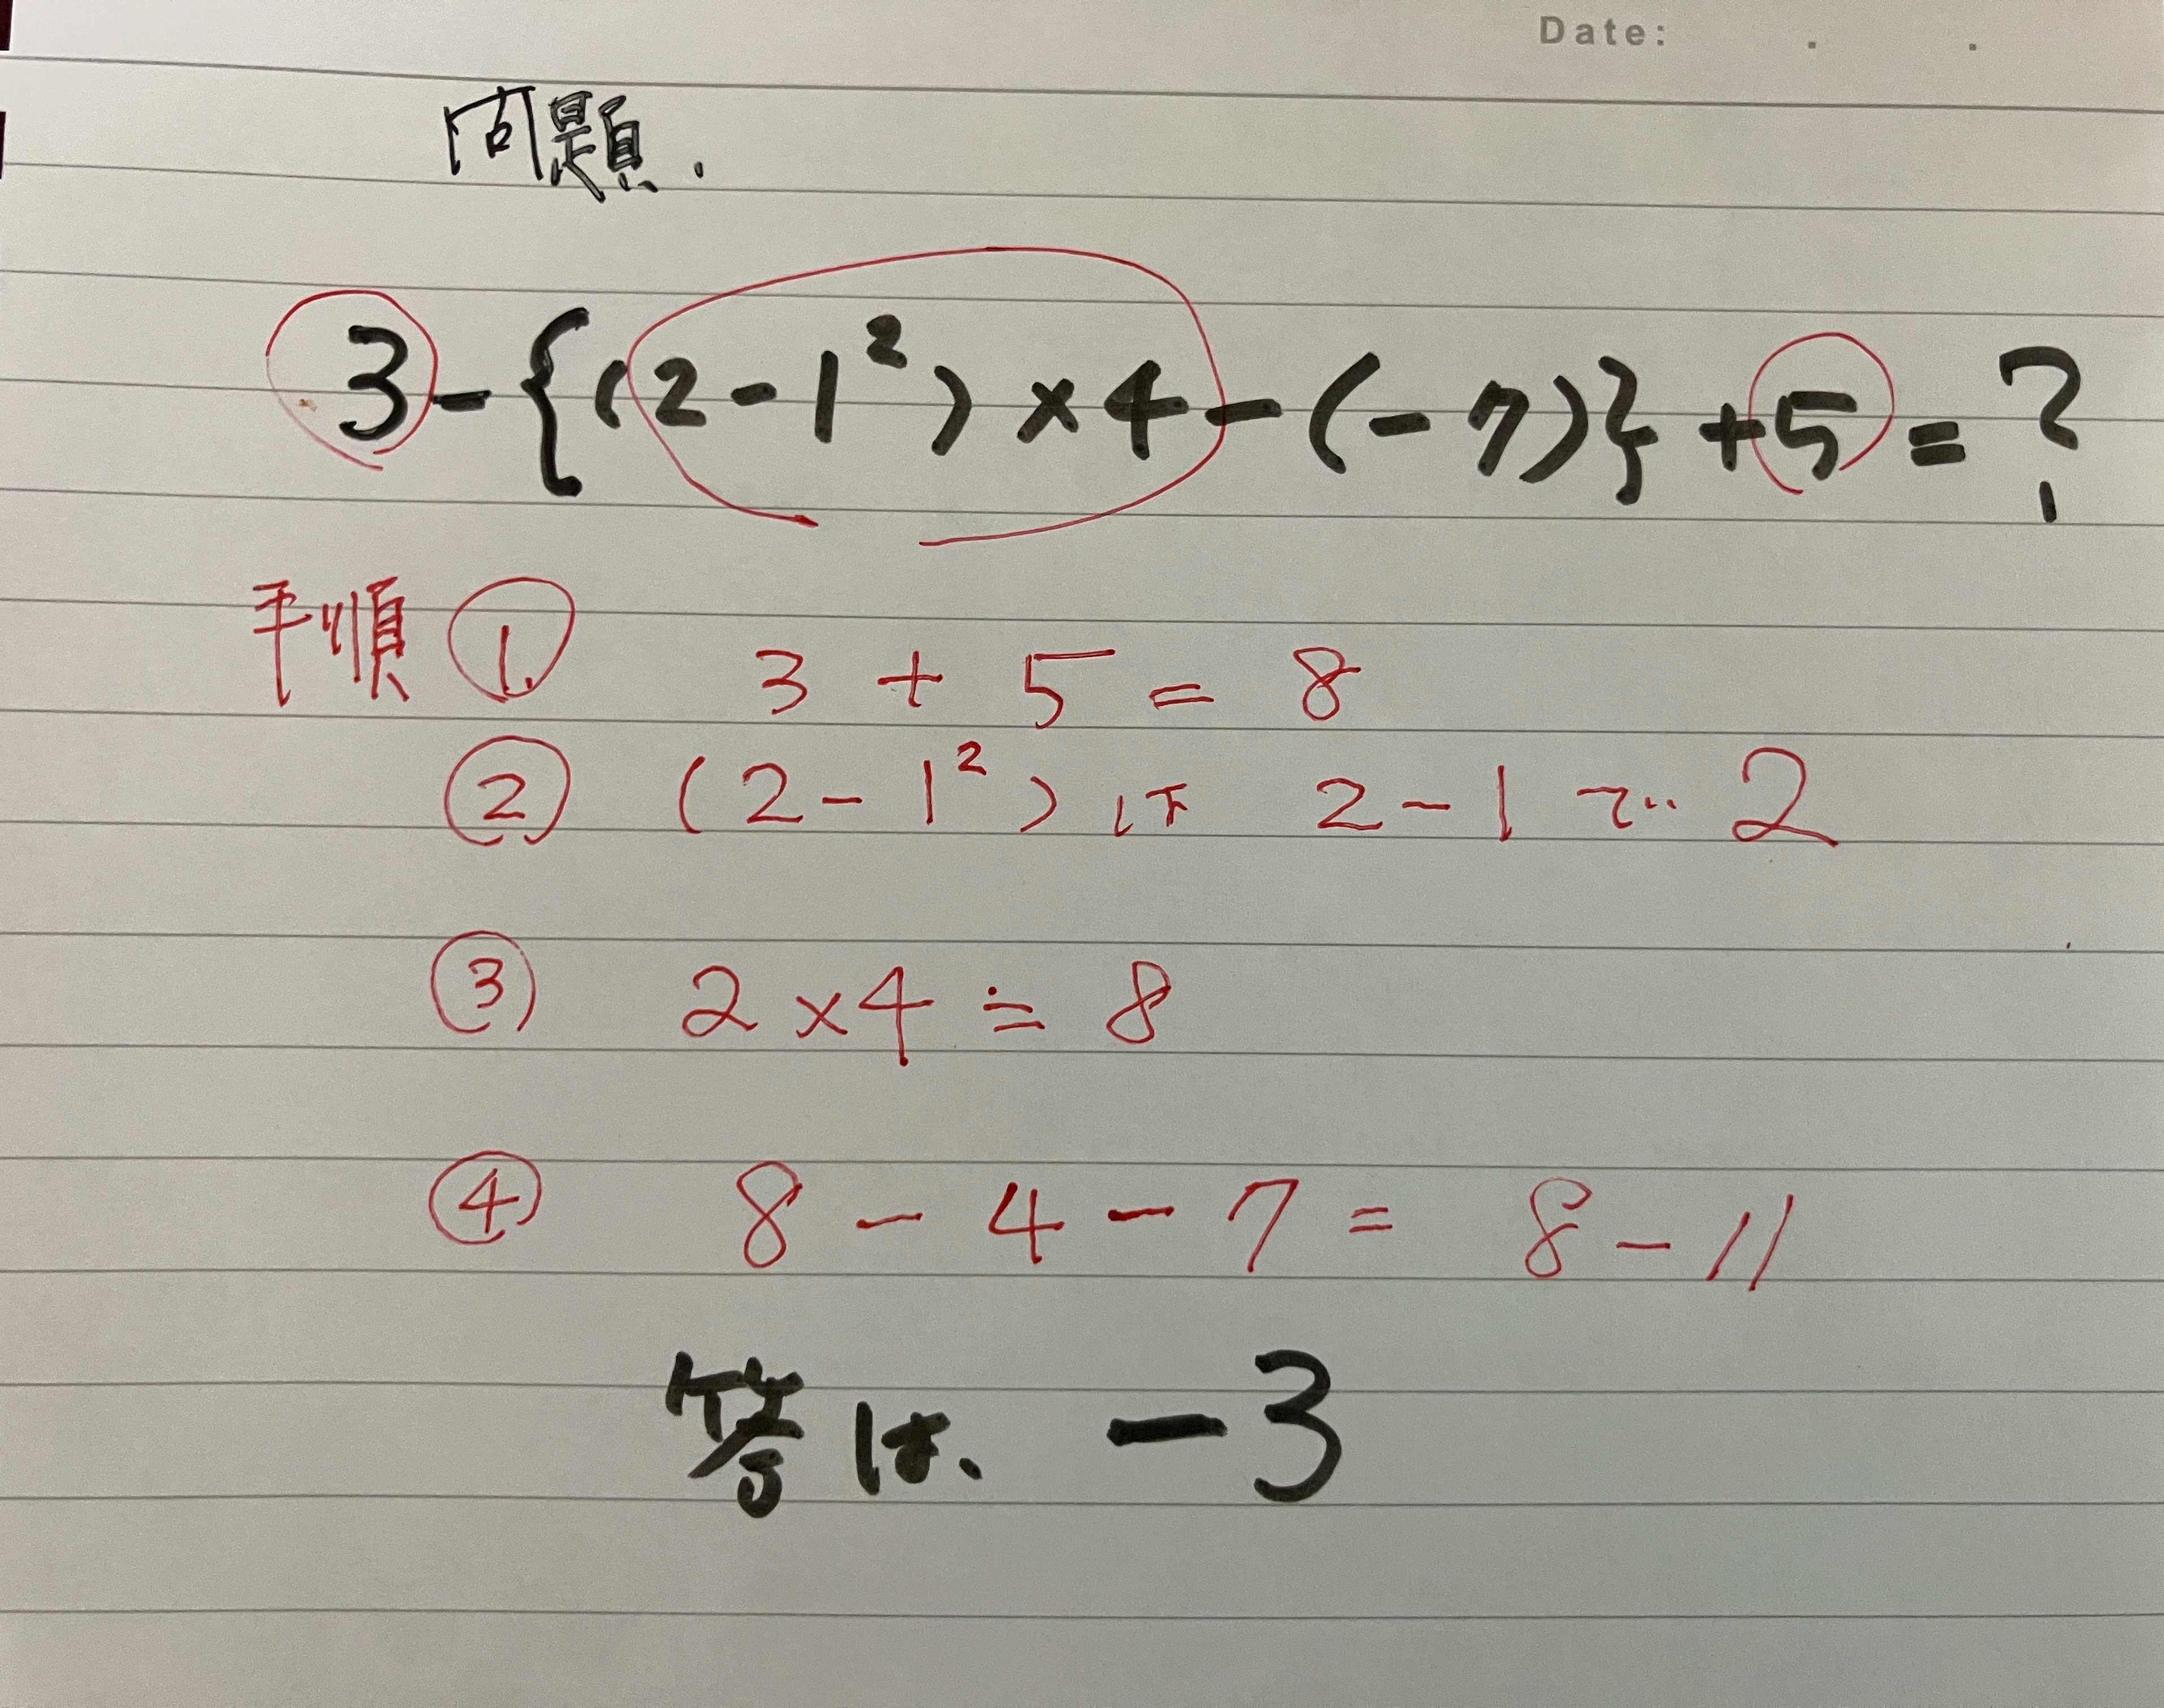 Date: . .
問題.
3-{(2-1²)×4-(-7)}+5=?
手順 ① 3+5=8
② (2-1²)は 2-1で 2
③ 2×4≒8
④ 8-4-7=8-11
答は、-3